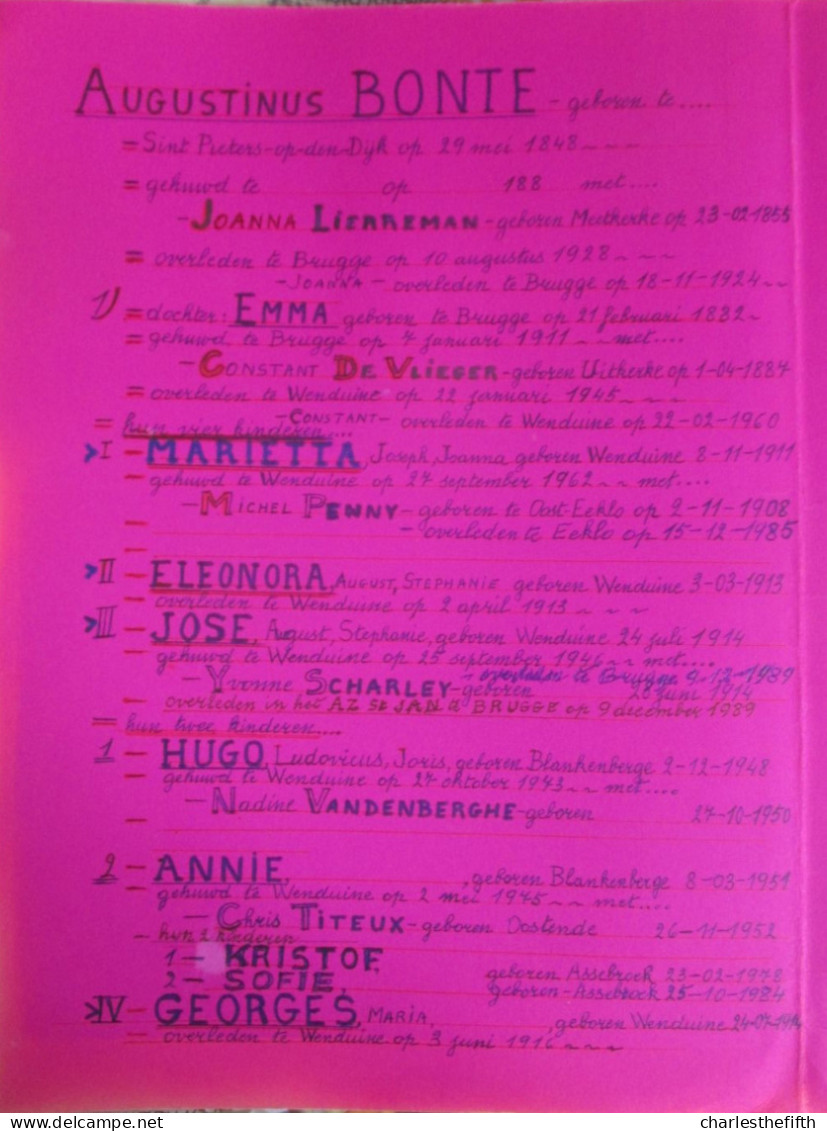 AUGUSTINUS BONTE - geboren te ....
= Sint Pieters-op-den-Dijk op 29 mei 1848 ~~~
= gehuwd te op 188 met....
- JOANNA LIERREMAN - geboren Meetkerke op 23-02-1855
= overleden te Brugge op 10 augustus 1928 ~~~
- JOANNA - overleden te Brugge op 18-11-1924 ~~
1) = dochter: EMMA geboren te Brugge op 21 februari 1882 ~
= gehuwd te Brugge op 7 januari 1911 ~~ met....
- CONSTANT DE VLIEGER - geboren Uitkerke op 1-04-1887
= overleden te Wenduine op 22 januari 1945 ~~~
- CONSTANT - overleden te Wenduine op 22-02-1960
= hun vier kinderen....
>I - MARIETTA, Joseph, Joanna geboren Wenduine 8-11-1911
- gehuwd te Wenduine op 27 september 1962 ~ met....
- MICHEL PENNY - geboren te Oost-Eeklo op 2-11-1908
- overleden te Eeklo op 15-12-1985
>II - ELEONORA, AUGUST, STEPHANIE geboren Wenduine 3-03-1913
- overleden te Wenduine op 2 april 1913 ~~~
>III - JOSE, August, Stephanie, geboren Wenduine 24 juli 1914
gehuwd te Wenduine op 25 september 1946 ~~ met....
- overleden te Brugge 9-12-1989
- YVONNE SCHARLEY - geboren 26 juni 1914
- overleden in het AZ ST JAN te BRUGGE op 9 december 1989
= hun twee kinderen....
1 - HUGO, Ludovicus, Joris, geboren Blankenberge 2-12-1948
- gehuwd te Wenduine op 27 oktober 1973 ~~ met....
- NADINE VANDENBERGHE - geboren 27-10-1950
2 - ANNIE, , geboren Blankenberge 8-03-1951
- gehuwd te Wenduine op 2 mei 1975 ~~ met....
- CHRIS TITEUX - geboren Oostende 26-11-1952
- hun 2 kinderen
1 - KRISTOF,
geboren Assebroek 23-02-1978
2 - SOFIE,
geboren - Assebroek 25-10-1984
>IV - GEORGES, MARIA, , geboren Wenduine 24-07-1914
- overleden te Wenduine op 3 juni 1916 ~~~
charlesthefifth